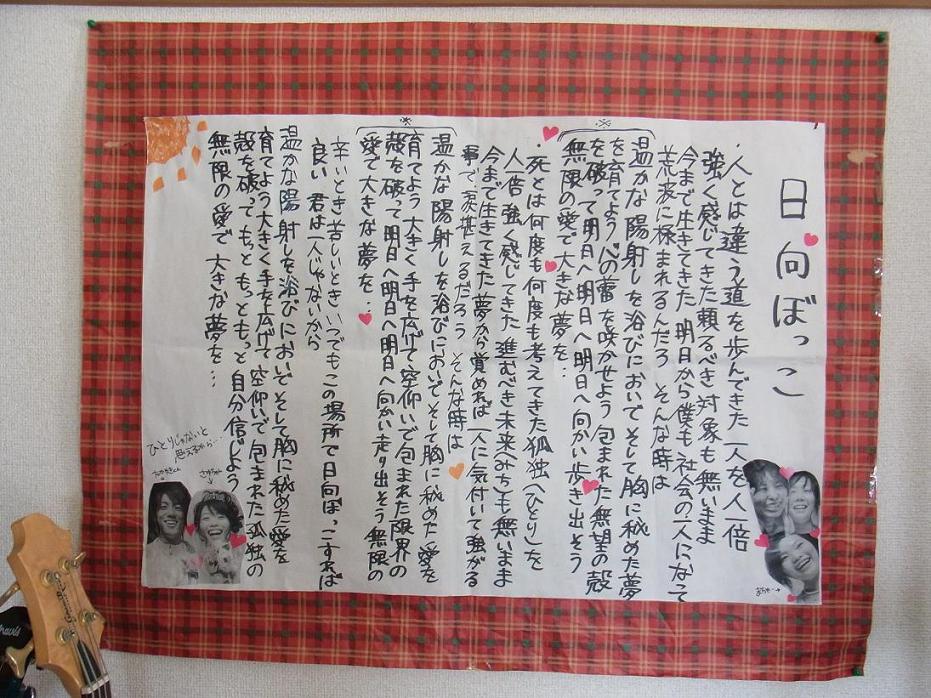 日向ぼっこ
・人とは違う道を歩んできた 一人を人一倍
強く感じてきた頼るべき対象も無いまま
今まで生きてきた 明日から僕も社会の一人になって
荒波に極まれるんだろ そんな時は
※
温かな陽射しを浴びにおいでそして胸に秘めた夢
を育てよう心の蕾を咲かせよう 包まれた無望の殻
を破って明日へ明日へ明日へ向かい歩き出そう
無限の愛で大きな夢を…
・死とは何度も何度も考えてきた孤独(ひとり)を
人一倍強く感じてきた 進むべき未来(みち)も無いまま
今まで生きてきた夢から覚めれば一人に気付いて強がる
事で 甚えるだろう そんな時は
※
温かな陽射しを浴びにおいでそして胸に秘めた愛を
育てよう大きく手を広げて空仰いで包まれた限界の
殻を破って明日へ明日へ向かい走り出そう無限の
愛で大きな夢を…
辛いとき苦しいとき いつでもこの場所で日向ぼっこすれば
良い 君は一人じゃないから
温かな陽射しを浴びにおいでそして胸に秘めた愛を
育てよう大きく手を広げて空仰いで包まれた孤独の
殻を破ってもっともっともっと自分信じよう
無限の愛で大きな夢を…
ひとりじゃないと
思えるから…